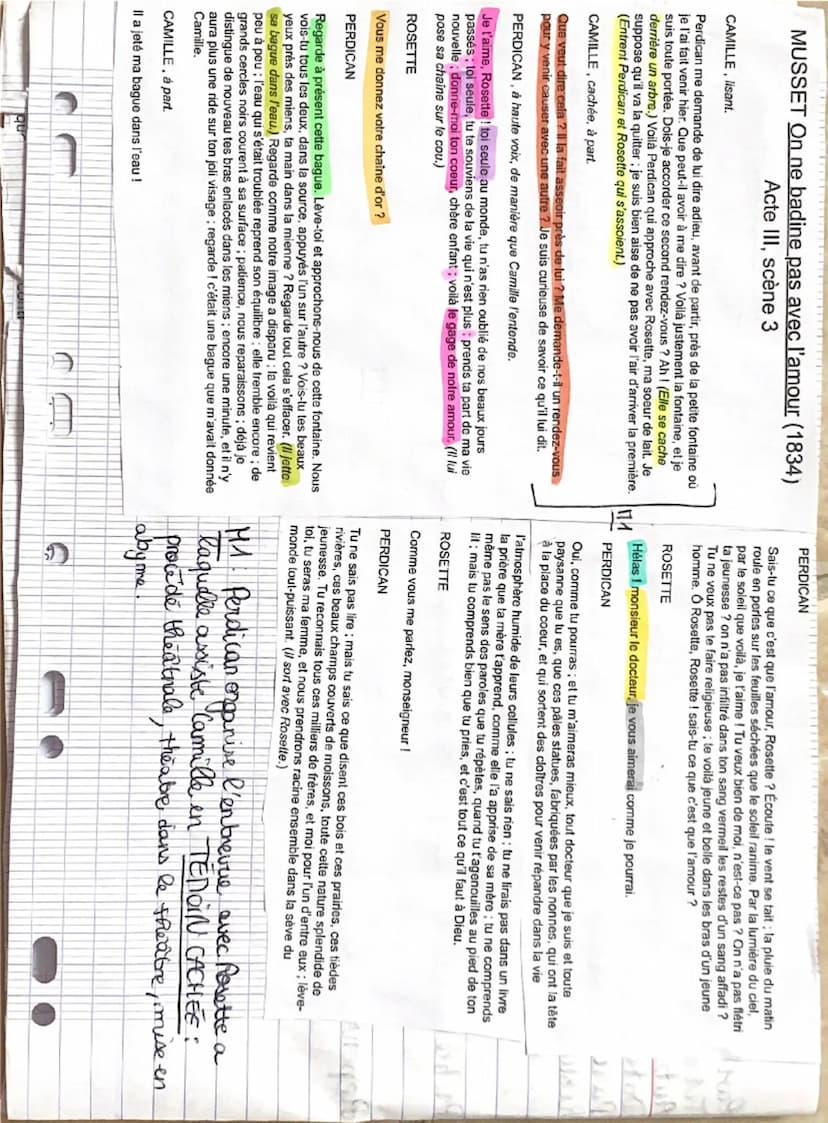 MUSSET On ne badine pas avec l'amour (1834)
Acte III, scène 3
CAMILLE, lisant.
Perdican me demande de lui dire adieu, avant de partir, près de la petite fontaine où
je l'ai fait venir hier. Que peut-il avoir à me dire ? Voilà justement la fontaine, et je
suis toute portée. Dois-je accorder ce second rendez-vous ? Ah ! (Elle se cache
derrière un arbre.) Voilà Perdican qui approche avec Rosette, ma soeur de lait. Je
suppose qu'il va la quitter ; je suis bien aise de ne pas avoir l'air d'arriver la première.
(Entrent Perdican et Rosette qui s'assoient.)
CAMILLE, cachée, à part.
Que veut dire cela ? Il la fait asseoir près de lui ? Me demande-t-il un rendez-vous
pour y venir causer avec une autre ? Je suis curieuse de savoir ce qu'il lui dit.
PERDICAN, à haute voix, de manière que Camille l'entende.
Je t'aime, Rosette ! toi seule au monde, tu n'as rien oublié de nos beaux jours
passés ; toi seule, tu te souviens de la vie qui n'est plus ; prends ta part de ma vie
nouvelle ; donne-moi ton coeur, chère enfant ; voilà le gage de notre amour. (Il lui
pose sa chaîne sur le cou.)
ROSETTE
Vous me donnez votre chaîne d'or ?
PERDICAN
Regarde à présent cette bague. Lève-toi et approchons-nous de cette fontaine. Nous
vois-tu tous les deux, dans la source, appuyés l'un sur l'autre ? Vois-tu tes beaux
yeux près des miens, ta main dans la mienne ? Regarde tout cela s'effacer. (Il jette
sa bague dans l'eau.) Regarde comme notre image a disparu ; la voilà qui revient
peu à peu ; l'eau qui s'était troublée reprend son équilibre ; elle tremble encore ; de
grands cercles noirs courent à sa surface ; patience, nous reparaissons ; déjà je
distingue de nouveau tes bras enlacés dans les miens ; encore une minute, et il n'y
aura plus une ride sur ton joli visage ; regarde ! c'était une bague que m'avait donnée
Camille.
CAMILLE, à part.
Il a jeté ma bague dans l'eau !
M1
PERDICAN
Sais-tu ce que c'est que l'amour, Rosette ? Écoute ! le vent se tait ; la pluie du matin
roule en perles sur les feuilles séchées que le soleil ranime. Par la lumière du ciel,
par le soleil que voilà, je t'aime ! Tu veux bien de moi, n'est-ce pas ? On n'a pas flétri
ta jeunesse ? on n'a pas infiltré dans ton sang vermeil les restes d'un sang affadi ?
Tu ne veux pas te faire religieuse ; te voilà jeune et belle dans les bras d'un jeune
homme. Ô Rosette, Rosette ! sais-tu ce que c'est que l'amour ?
ROSETTE
Hélas ! monsieur le docteur, je vous aimerai comme je pourrai.
PERDICAN
Oui, comme tu pourras ; et tu m'aimeras mieux, tout docteur que je suis et toute
paysanne que tu es, que ces pâles statues, fabriquées par les nonnes, qui ont la tête
à la place du coeur, et qui sortent des cloîtres pour venir répandre dans la vie
l'atmosphère humide de leurs cellules ; tu ne sais rien ; tu ne lirais pas dans un livre
la prière que ta mère t'apprend, comme elle l'a apprise de sa mère ; tu ne comprends
même pas le sens des paroles que tu répètes, quand tu t'agenouilles au pied de ton
lit ; mais tu comprends bien que tu pries, et c'est tout ce qu'il faut à Dieu.
ROSETTE
Comme vous me parlez, monseigneur !
PERDICAN
Tu ne sais pas lire ; mais tu sais ce que disent ces bois et ces prairies, ces tièdes
rivières, ces beaux champs couverts de moissons, toute cette nature splendide de
jeunesse. Tu reconnais tous ces milliers de frères, et moi pour l'un d'entre eux ; lève-
toi, tu seras ma femme, et nous prendrons racine ensemble dans la sève du
monde tout-puissant. (Il sort avec Rosette.)
M1: Perdican organise l'entrevue avec Rosette a
laquelle assiste Camille en TÉMOIN CACHÉE :
procédé théâtrale, théâtre dans le théâtre, mise en
abyme.